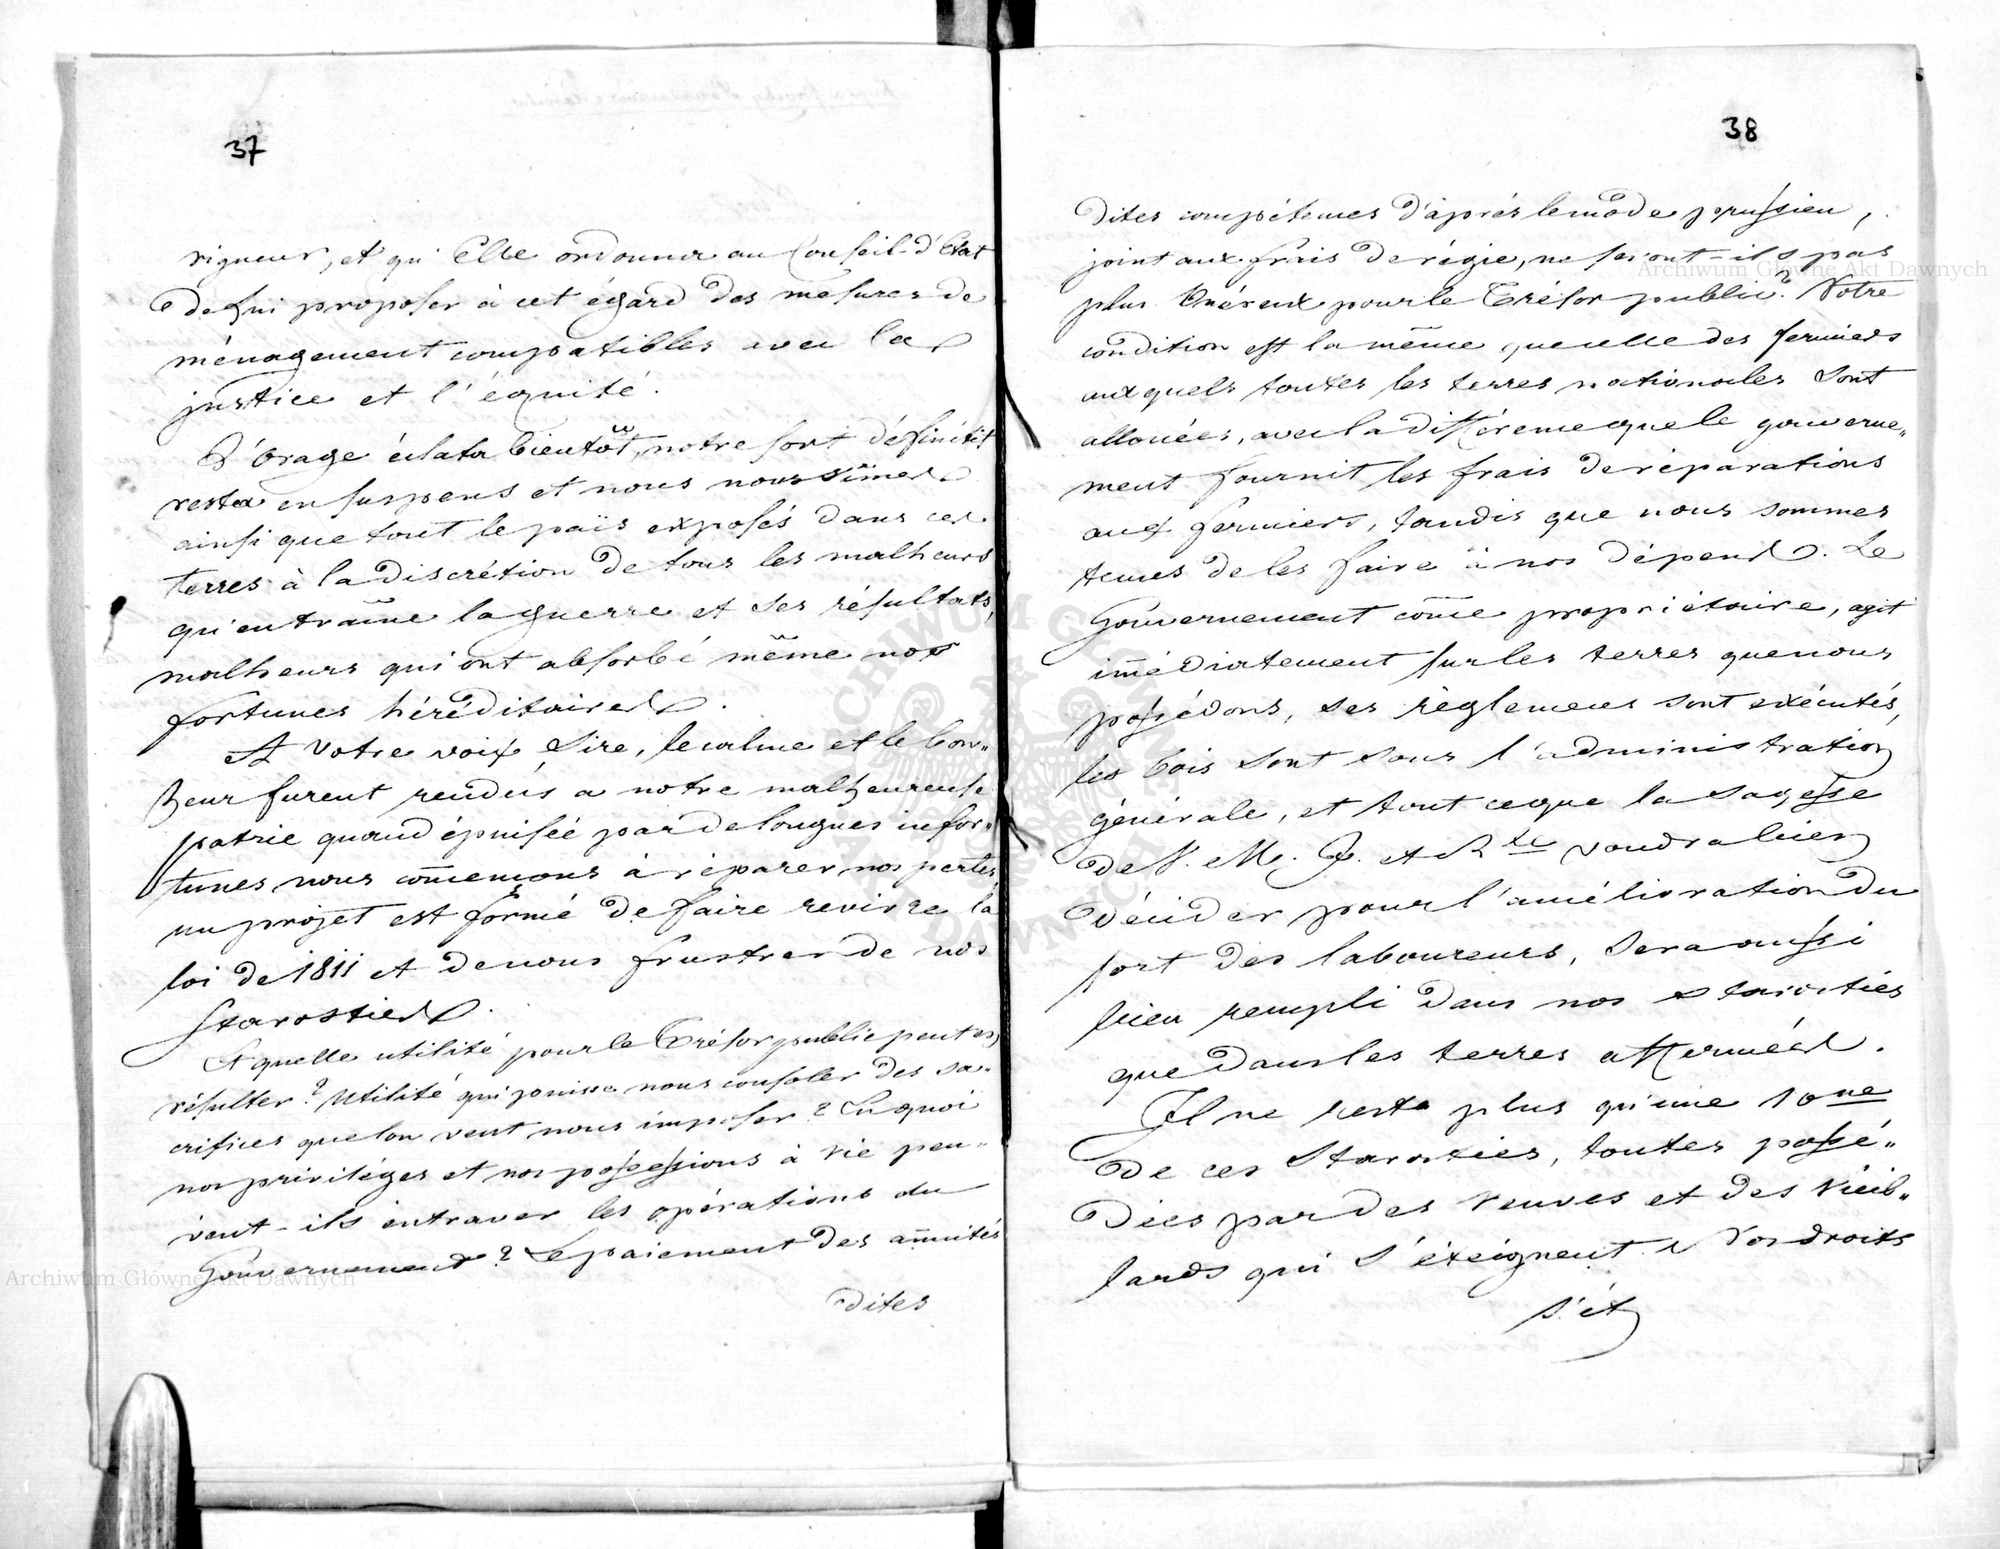 37
rigueur, et qu'Elle ordonna au Conseil-d'Etat
de Lui proposer à cet égard des mesures de
ménagement compatibles avec la
justice et l'équité.
L'orage éclata bientôt, notre sort définitif
resta en suspens et nous nous vîmes
ainsi que tout le païs exposés dans ces
terres à la discrétion de tous les malheurs
qu'entraîne la guerre et ses résultats,
malheurs qui ont absorbé même nos
fortunes héréditaires.
A Votre voix, Sire, le calme et le bon„
heur furent rendus a notre malheureuse
patrie quand épuisée par de longues infor„
tunes nous com̃ençons à réparer nos pertes,
un projet est formé de faire revivre la
loi de 1811 et de nous frustrer de nos
Starosties.
Et quelle utilité pour le Trésor public peut en
résulter? Utilité qui puisse nous consoler des sa„
crifices que l'on veut nous imposer? En quoi
nos privilèges et nos possessions à vie peu„
vent-ils entraver les opérations du
Gouvernement? Le paiement des an̄uités
dites
38
dites compétences d'après le mode prussien,
joint aux frais de régie, ne seront-ils pas
plus onéreux pour le Trésor public? Notre
condition est la même que celle des fermiers
auxquels toutes les terres nationales sont
allouées, avec la différence que le gouverne„
ment fournit les frais de réparations
aux fermiers, tandis que nous sommes
tenus de les faire à nos dépens. Le
Gouvernement com̃e propriétaire, agit
im̃édiatement sur les terres que nous
possédons, ses règlemens sont exécutés,
les bois sont sous l'administration
générale, et tout ce que la sagesse
de V. M. J. et R.le voudra bien
décider pour l'amélioration du
sort des laboureurs, sera aussi
bien rempli dans nos starosties
que dans les terres affermées.
Il ne reste plus qu'une 10ne
de ces Starosties, toutes possé„
dées par des veuves et des vieil„
lards qui s'éteignent. Nos droits
s'ét
Archiwum Główne Akt Dawnych
Archiwum Główne Akt Dawnych
ARCHIWUM GŁÓWNE AKT DAWNYCH